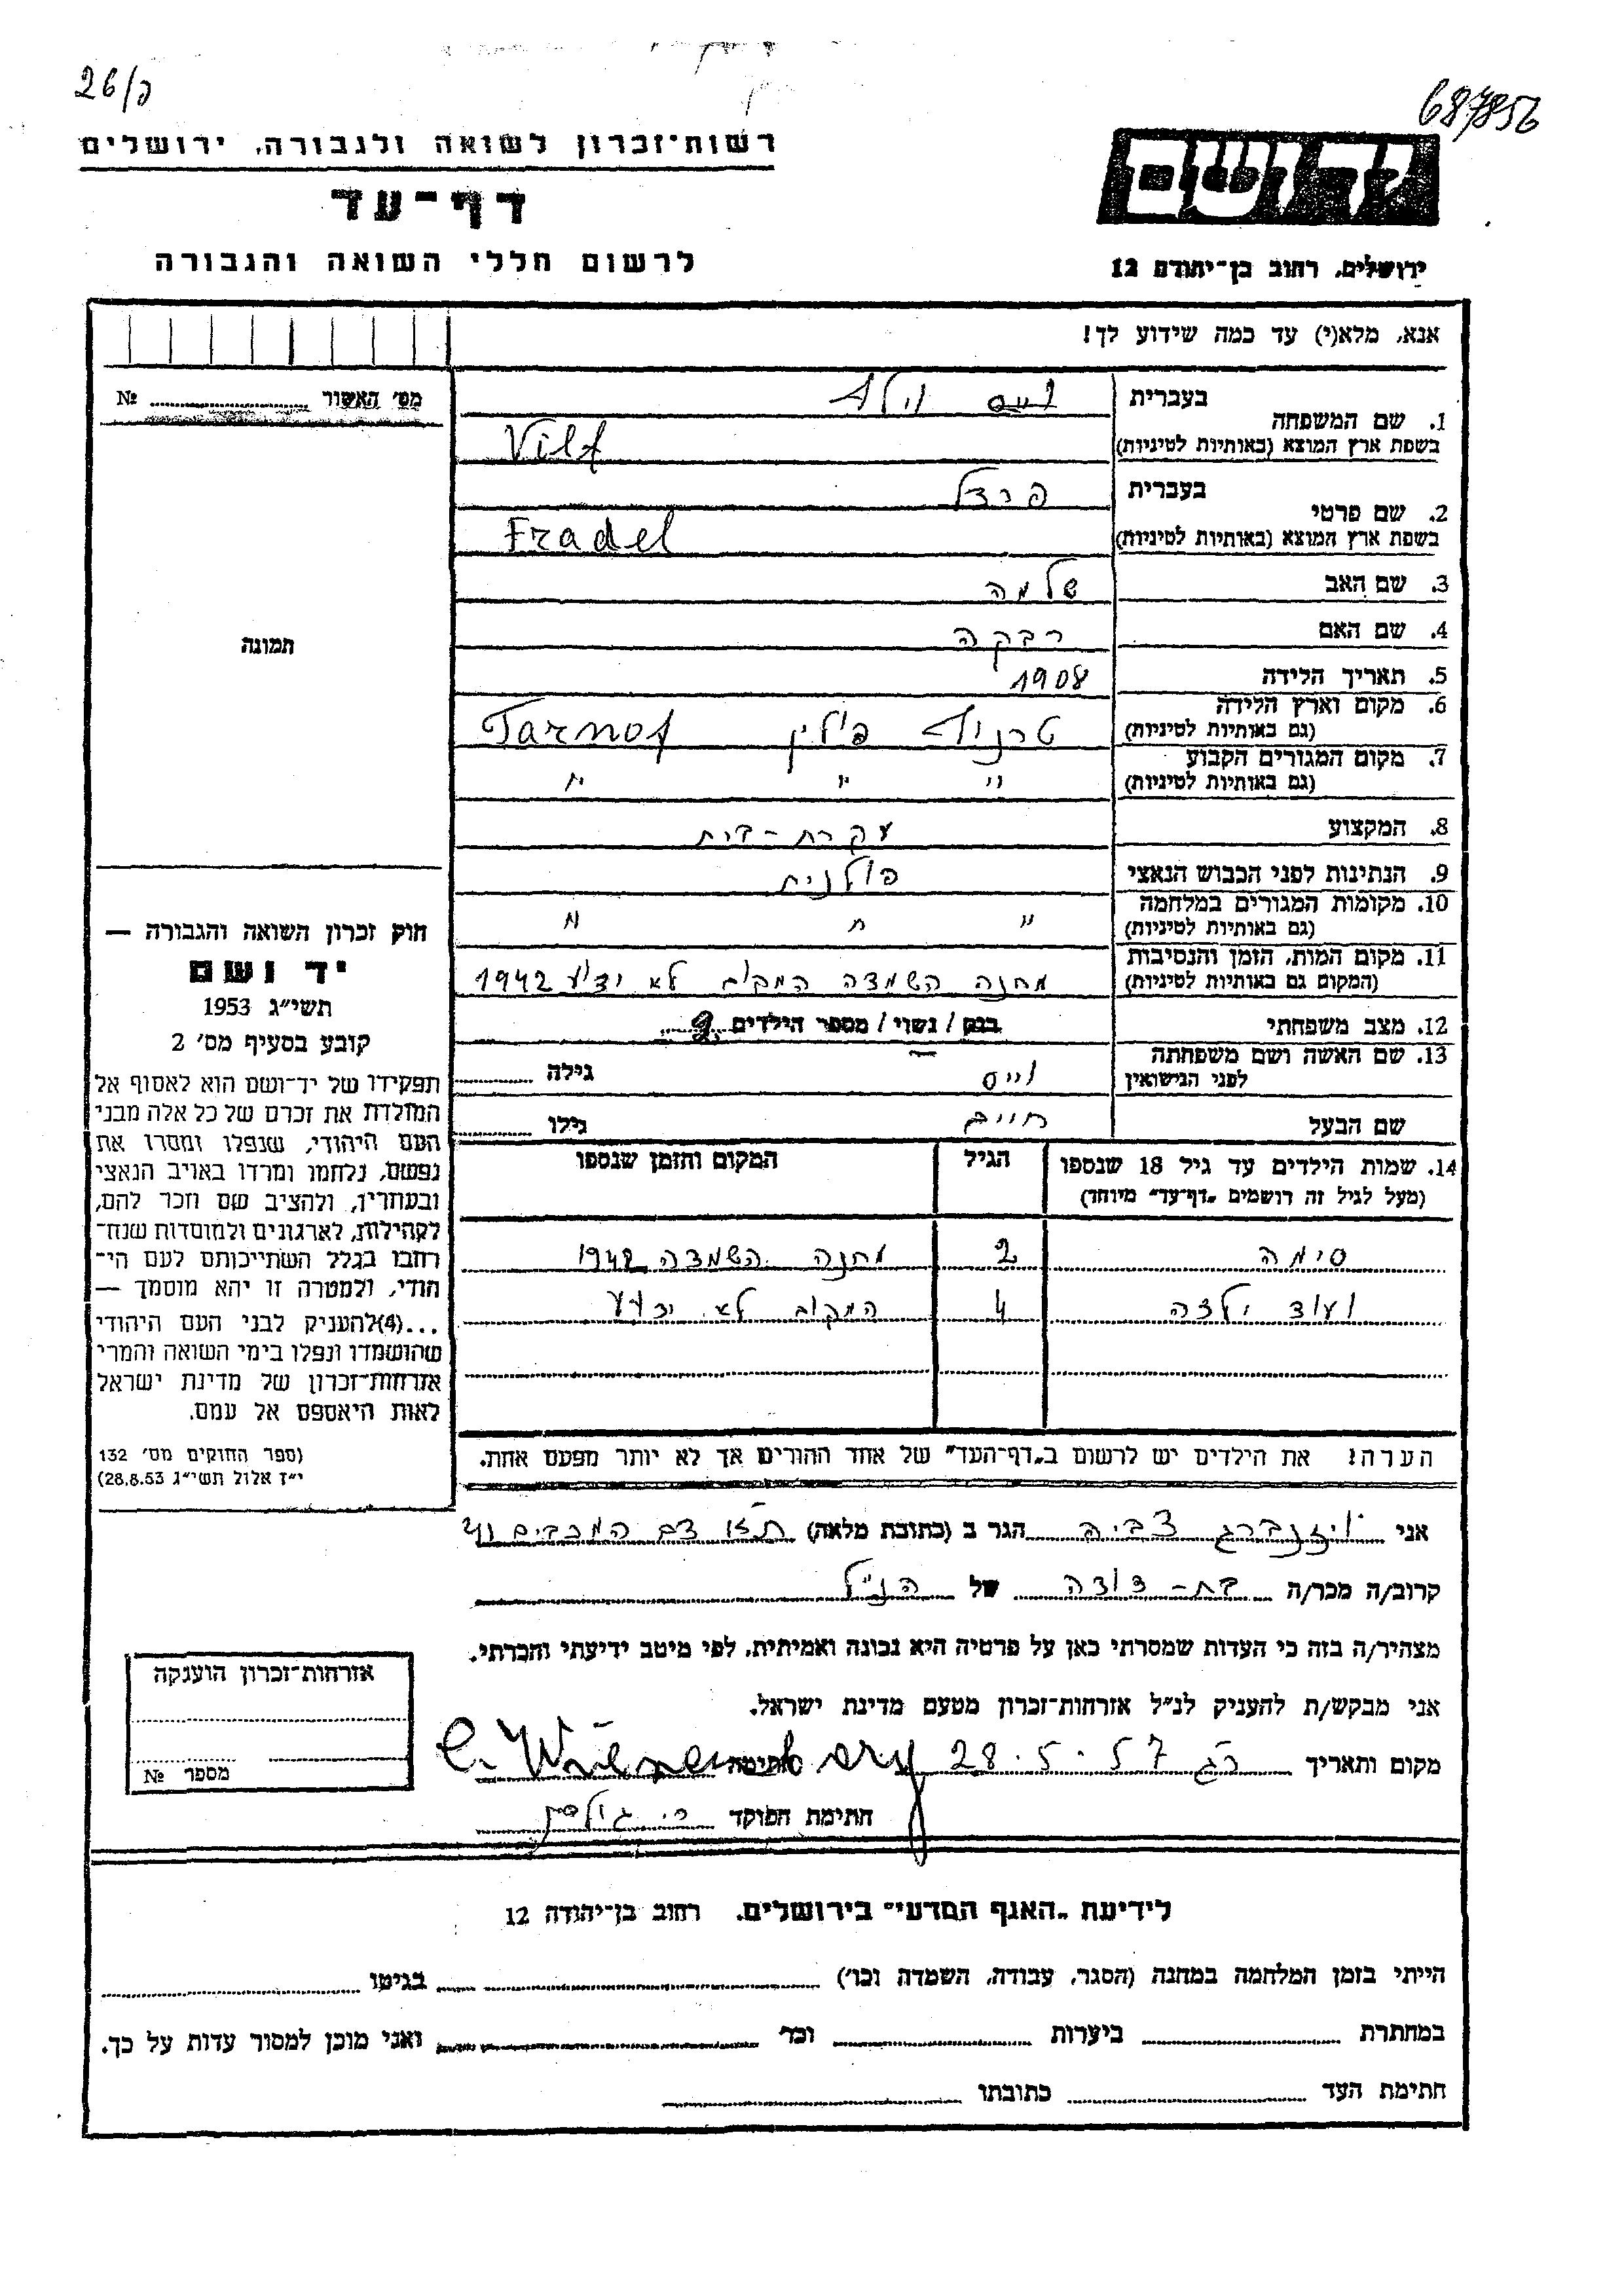 26/כ
687856
רשות־זכרון לשואה ולגבורה, ירושלים
דף־עד
לרשום חללי השואה והגבורה
יד ושם
ירושלים, רחוב בן־יהודה 12
אנא, מלא(י) עד כמה שידוע לך!
מס׳ האשור № 
1. שם המשפחה
בעברית וילף
בשפת ארץ המוצא (באותיות לטיניות) Vilf
2. שם פרטי
בעברית פרדל
בשפת ארץ המוצא (באותיות לטיניות) Fradel
3. שם האב שלמה
4. שם האם רבקה
5. תאריך הלידה 1908
6. מקום וארץ הלידה (גם באותיות לטיניות) טרנוף פולין Tarnof
7. מקום המגורים הקבוע (גם באותיות לטיניות) " " "
8. המקצוע עקרת-בית
9. הנתינות לפני הכבוש הנאצי פולנית
10. מקומות המגורים במלחמה (גם באותיות לטיניות) " " "
11. מקום המות, הזמן והנסיבות (המקום גם באותיות לטיניות) מחנה השמדה המקום לא ידוע 1942
12. מצב משפחתי רווק / נשוי / מספר הילדים 2
13. שם האשה ושם משפחתה לפני הנישואין וייס גילה
שם הבעל חיים גילו
14. שמות הילדים עד גיל 18 שנספו (מעל לגיל זה רושמים „דף־עד" מיוחד)
הגיל
המקום והזמן שנספו
סימה 2 מחנה השמדה 1942
ועוד ילדה 4 המקום לא ידוע
הערה: את הילדים יש לרשום ב„דף־העד" של אחד ההורים אך לא יותר מפעם אחת.
תמונה
חוק זכרון השואה והגבורה —
יד ושם
תשי״ג 1953
קובע בסעיף מס׳ 2
תפקידו של יד־ושם הוא לאסוף אל
המולדת את זכרם של כל אלה מבני
העם היהודי, שנפלו ומסרו את
נפשם, נלחמו ומרדו באויב הנאצי
ובעוזריו, ולהציב שם וזכר להם,
לקהילות, לארגונים ולמוסדות שנח־
רבו בגלל השתייכותם לעם הי־
הודי, ולמטרה זו יהא מוסמך —
...(4)להעניק לבני העם היהודי
שהושמדו ונפלו בימי השואה והמרי
אזרחות־זכרון של מדינת ישראל
לאות היאספם אל עמם.
(ספר החוקים מס׳ 132
י״ז אלול תשי״ג 28.8.53)
אני ויזנברג צביה הגר ב (כתובת מלאה)
קרוב/ה מכר/ה בת-דודה של הנ״ל
מצהיר/ה בזה כי העדות שמסרתי כאן על פרטיה היא נכונה ואמיתית, לפי מיטב ידיעתי והכרתי.
אני מבקש/ת להעניק לנ״ל אזרחות־זכרון מטעם מדינת ישראל.
מקום ותאריך רג 28.5.57 חתימה
חתימת הפוקד
אזרחות־זכרון הוענקה
מספר №
לידיעת „האגף המדעי" בירושלים, רחוב בן־יהודה 12
הייתי בזמן המלחמה במחנה (הסגר, עבודה, השמדה וכו׳) בגיטו
במחתרת ביערות וכו׳ ואני מוכן למסור עדות על כך.
חתימת העד כתובתו